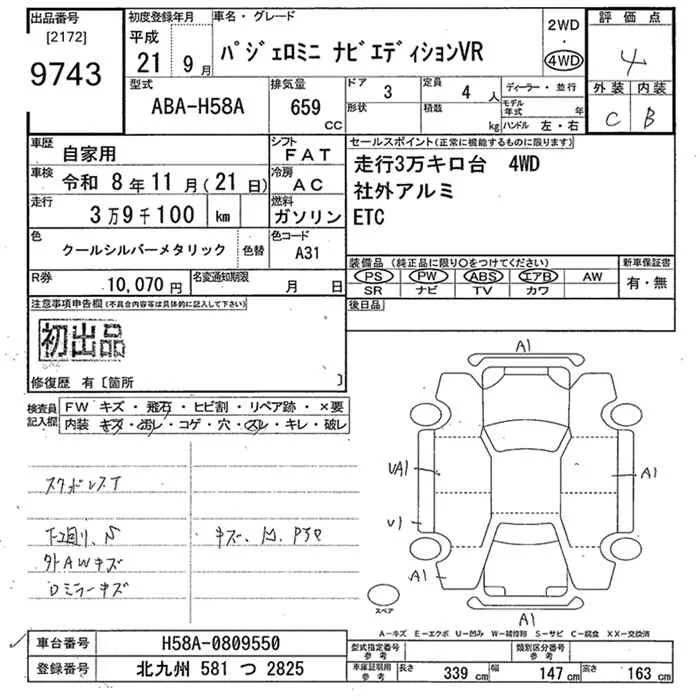 出品番号
[2172]
9743
初度登録年月
平成
21 9 月
車名・グレード
パジェロミニ ナビエディションVR
2WD
・
4WD
評価点
4
外装 内装
C B
型式
ABA-H58A
排気量
659
CC
ドア
3
形状
定員
4 人
積数
kg
ディーラー・並行
モデル年式 年
ハンドル 左・右
車歴
自家用
シフト
FAT
車検 令和 8 年 11 月 ( 21 日)
冷房
AC
走行
3 万 9 千 100 km
燃料
ガソリン
色
クールシルバーメタリック
色替
色コード
A31
R券
10,070 円
名変通知期限
月 日
セールスポイント(正常に機能するものに限ります)
走行3万キロ台 4WD
社外アルミ
ETC
装備品 (純正品に限り○をつけてください)
PS PW ABS エアB AW
SR ナビ TV カワ
新車保証書
有・無
後日品
注意事項申告欄(不具合内容等は具体的に記入して下さい)
初出品
修復歴 有〔箇所 〕
検査員記入欄
FW キズ・飛石・ヒビ割・リペア跡・×要
内装 キズ・汚レ・コゲ・穴・スレ・キレ・破レ
スタッドレスT
下回り、S
外AWキズ
Dミラーキズ
A1
UA1
A1
U1
A1
A1
スペア
A-キズ E-エクボ U-凹み W-補修跡 S-サビ C-腐食 XX-交換済
車台番号
H58A-0809550
登録番号
北九州 581 つ 2825
型式指定番号
参考
類別区分番号
参考
車庫証明用
参考
長さ 339 cm 幅 147 cm 高さ 163 cm